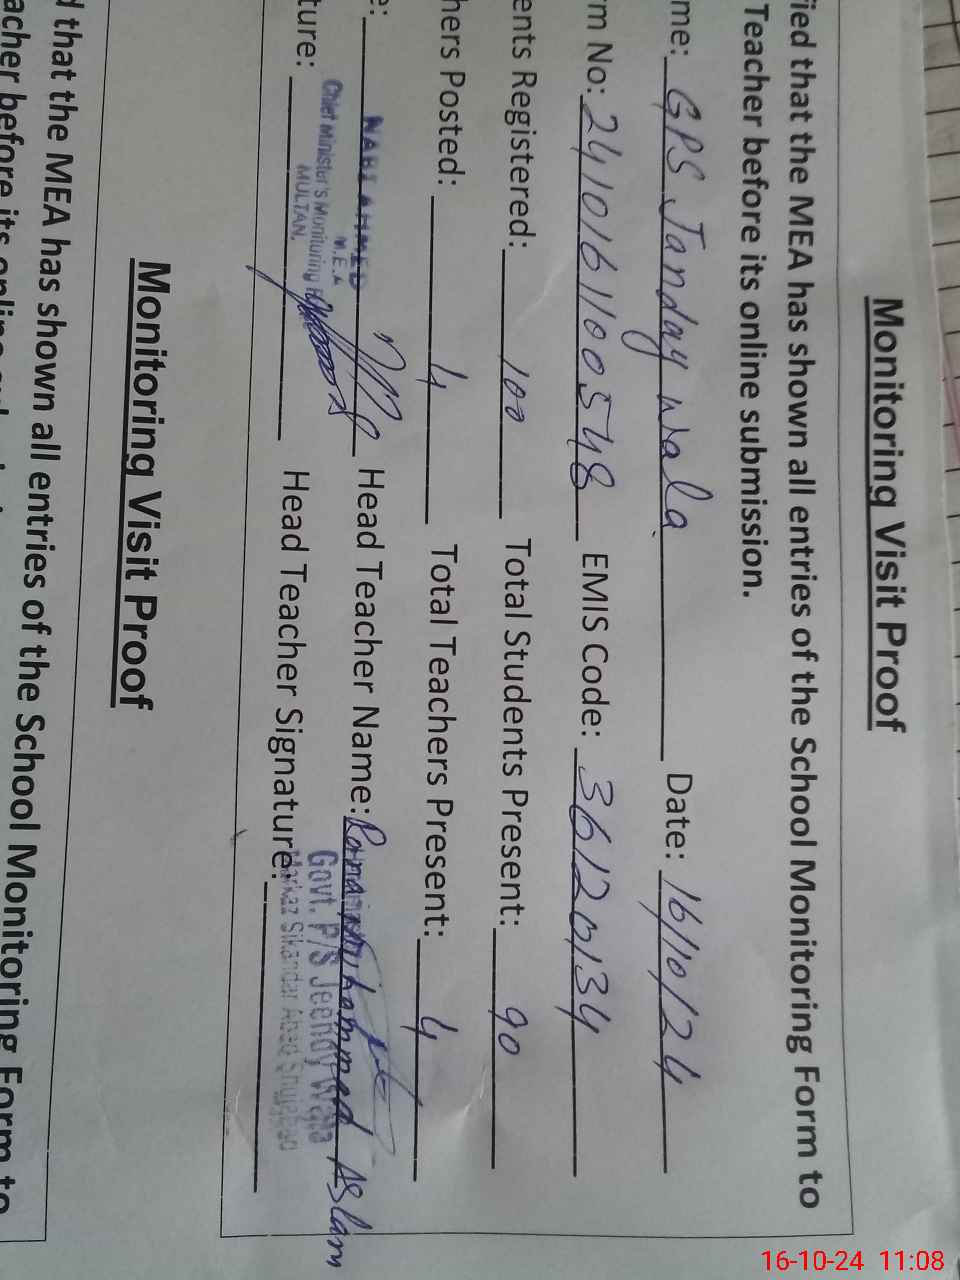 Monitoring Visit Proof
fied that the MEA has shown all entries of the School Monitoring Form to
Teacher before its online submission.
me: GPS Janday wala Date: 16/10/24
rm No: 24101611100548 EMIS Code: 36120134
ents Registered: 100 Total Students Present: 90
hers Posted: 4 Total Teachers Present: 4
e: NABI AHMED Head Teacher Name: Rana Muhammad Aslam
M.E.A
Chief Minister's Monitoring
MULTAN.
ture: Head Teacher Signature:
Govt. P/S Jeendy Wala
Markaz Sikandar Abad Shujabad
Monitoring Visit Proof
d that the MEA has shown all entries of the School Monitoring Form to
acher before its online
16-10-24 11:08